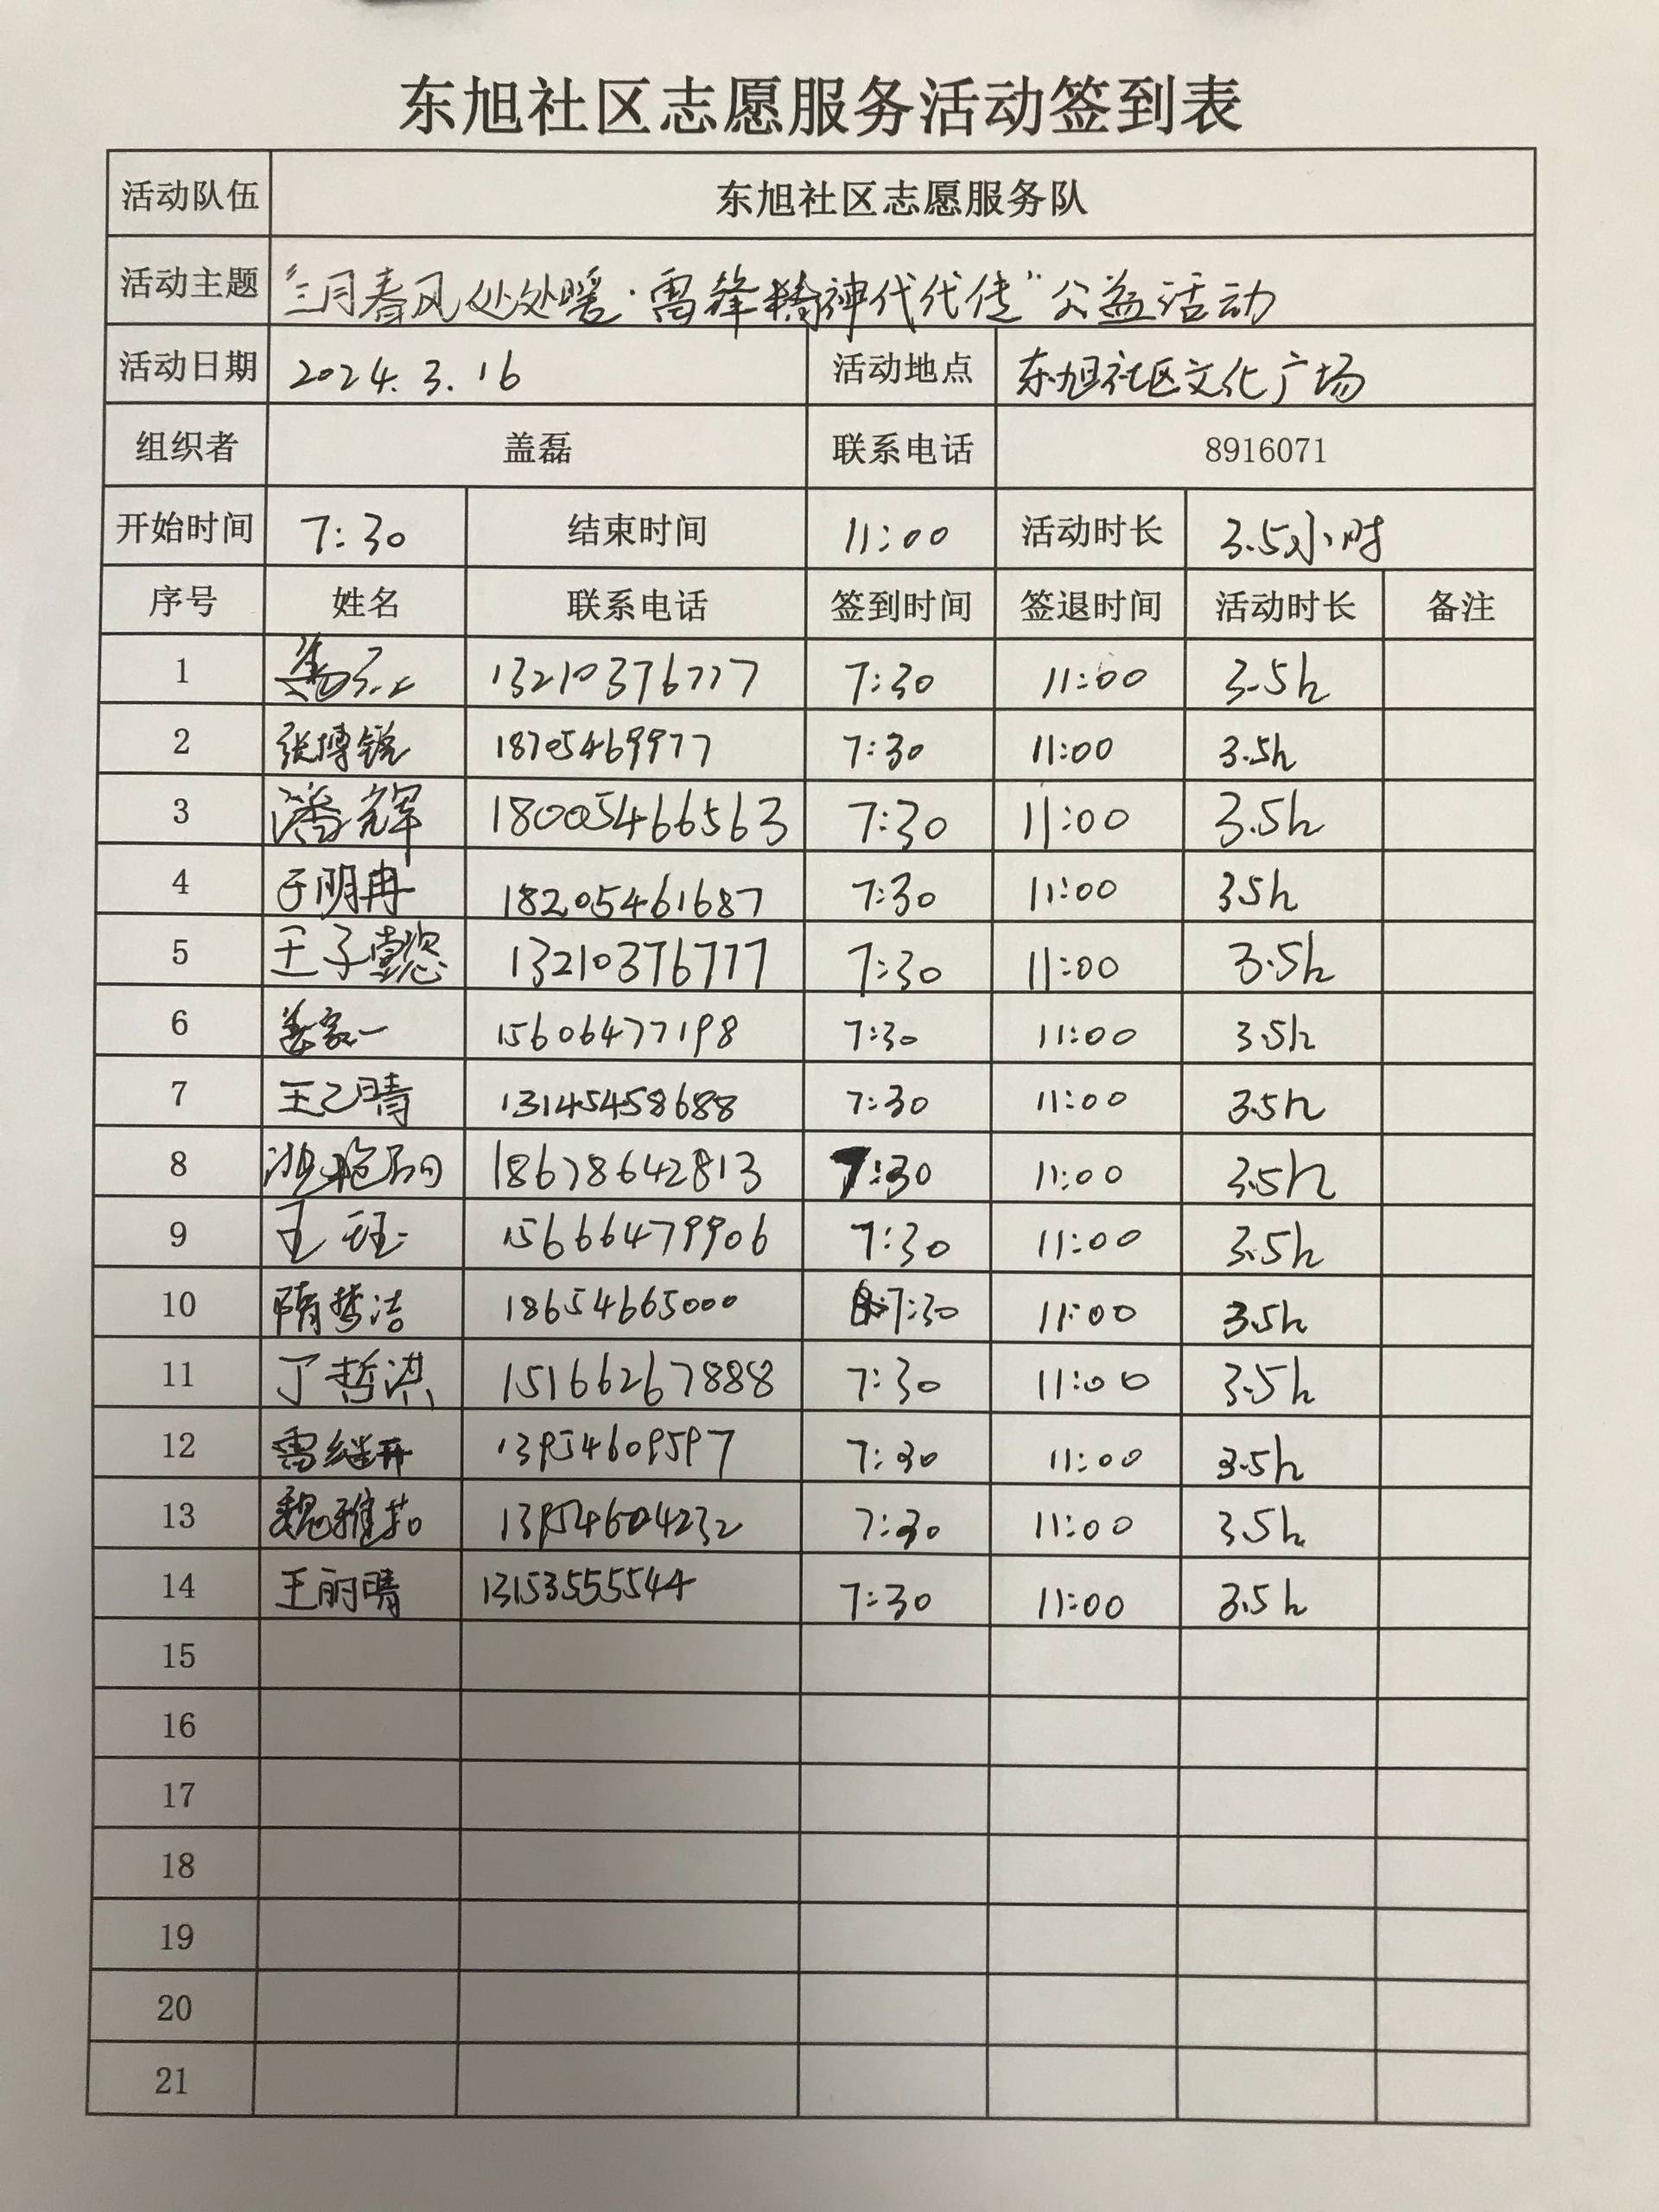 东旭社区志愿服务活动签到表
活动队伍 东旭社区志愿服务队
活动主题 “三月春风处处暖·雷锋精神代代传”公益活动
活动日期 2024.3.16 活动地点 东旭社区文化广场
组织者 盖磊 联系电话 8916071
开始时间 7:30 结束时间 11:00 活动时长 3.5小时
序号 姓名 联系电话 签到时间 签退时间 活动时长 备注
1 13210376777 7:30 11:00 3.5h
2 张博锐 18705469977 7:30 11:00 3.5h
3 潘辉 18005466563 7:30 11:00 3.5h
4 于明冉 18205461687 7:30 11:00 3.5h
5 王子懿 13210376777 7:30 11:00 3.5h
6 15606477198 7:30 11:00 3.5h
7 王乙晴 13145458688 7:30 11:00 3.5h
8 18678642813 7:30 11:00 3.5h
9 王珏 15666479906 7:30 11:00 3.5h
10 隋梦洁 18654665000 7:30 11:00 3.5h
11 丁哲洪 15166267888 7:30 11:00 3.5h
12 雷继开 13954609597 7:30 11:00 3.5h
13 魏雅茹 13954604232 7:30 11:00 3.5h
14 王雨晴 13153555544 7:30 11:00 3.5h
15
16
17
18
19
20
21